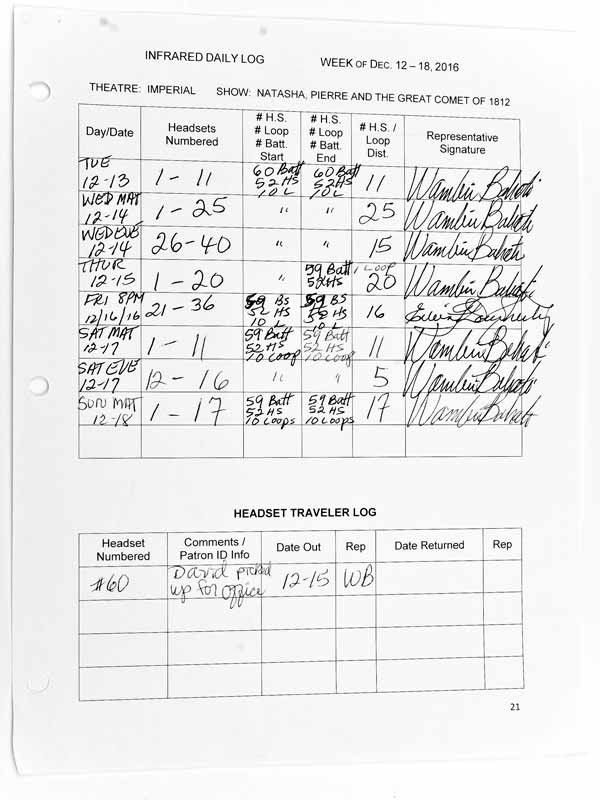 INFRARED DAILY LOG WEEK OF DEC. 12 – 18, 2016
THEATRE: IMPERIAL SHOW: NATASHA, PIERRE AND THE GREAT COMET OF 1812
Day/Date
Headsets
Numbered
# H.S.
# Loop
# Batt.
Start
# H.S.
# Loop
# Batt.
End
# H.S. /
Loop
Dist.
Representative
Signature
TUE
12-13
1 - 11
60 Batt
52 HS
10 L
60 Batt
52 HS
10 L
11
WED MAT
12-14
1 - 25
"
"
25
WED EVE
12-14
26-40
"
"
15
THUR
12-15
1 - 20
"
59 Batt, 1 LOOP
52HS
20
FRI 8PM
12/16/16
21 - 36
59 BS
52 HS
10 L
59 BS
52 HS
10 L
16
SAT MAT
12-17
1 - 11
59 Batt
52 HS
10 Loop
59 Batt
52 HS
10 Loop
11
SAT EVE
12-17
12 - 16
"
"
5
SUN MAT
12-18
1 - 17
59 Batt
52 HS
10 Loops
59 Batt
52 HS
10 Loops
17
HEADSET TRAVELER LOG
Headset
Numbered
Comments /
Patron ID Info
Date Out
Rep
Date Returned
Rep
#60
David picked
up for office
12-15
WB
21